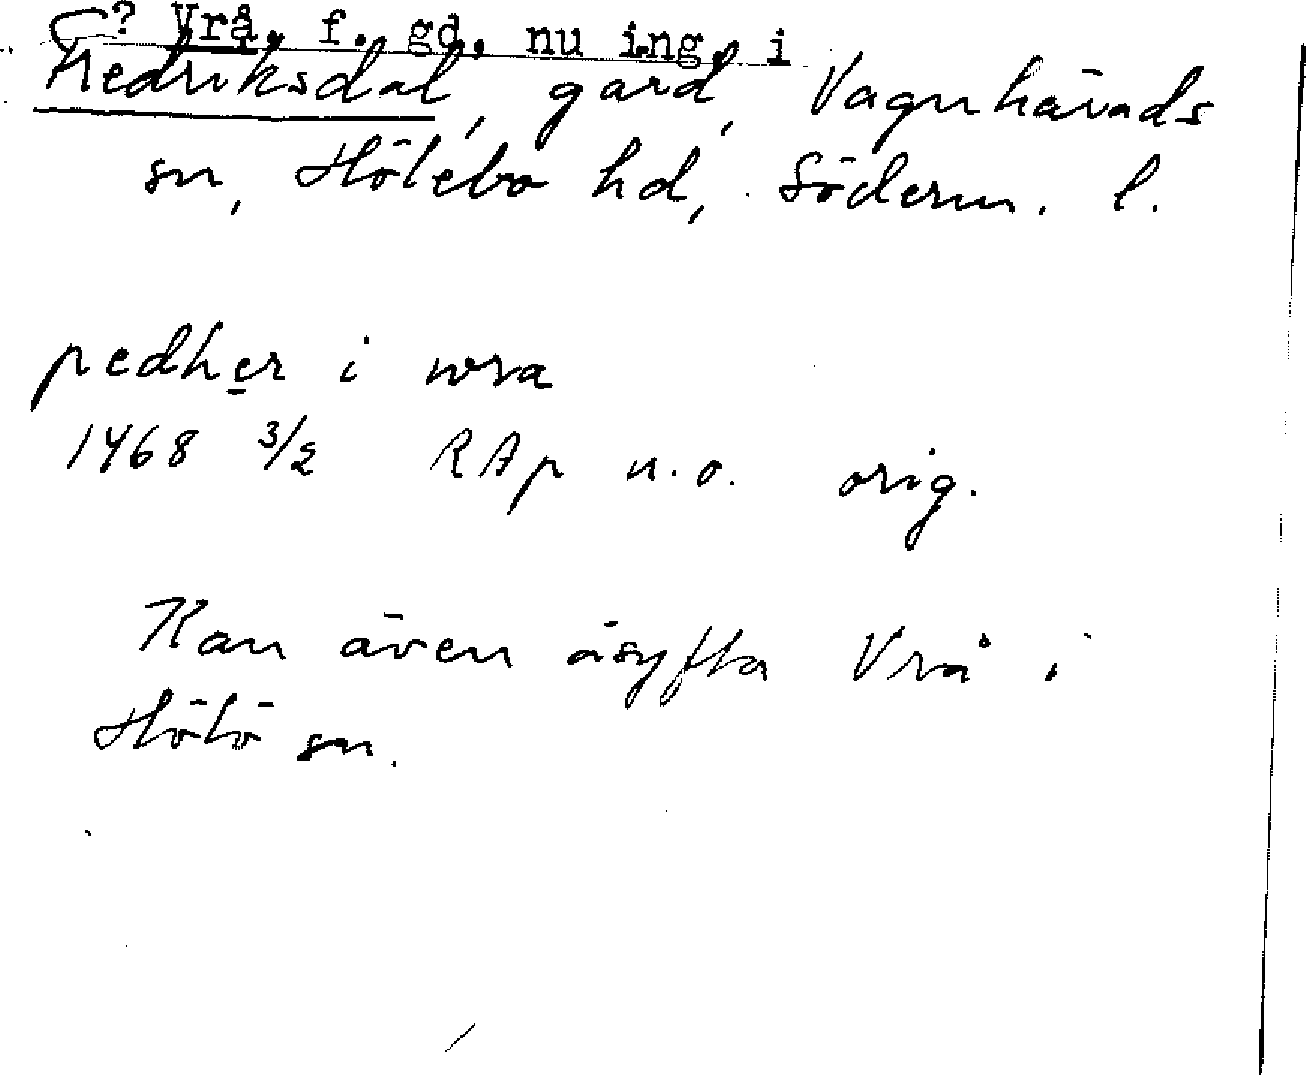 ? Vrå, f. gd. nu ing. i
Fredriksdal, gård, Vagnhärads
sn, Hölebo hd, Söderm. l.
pedher i wra
1468 3/2 RAp u.o. orig.
Kan även åsyfta Vrå i
Hölö sn.